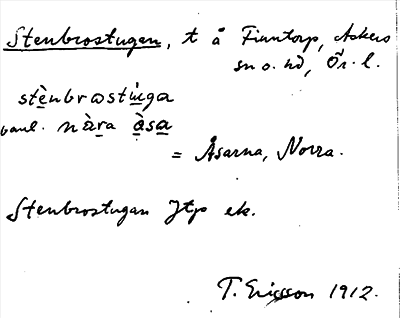 Stenbrostugan, t å Finntorp, Askers
sn o. hd, Ör. l.
stènbrostùga
vanl. nàra àsa
= Åsarna, Norra.
Stenbrostugan Jtp ek.
T. Ericsson 1912.